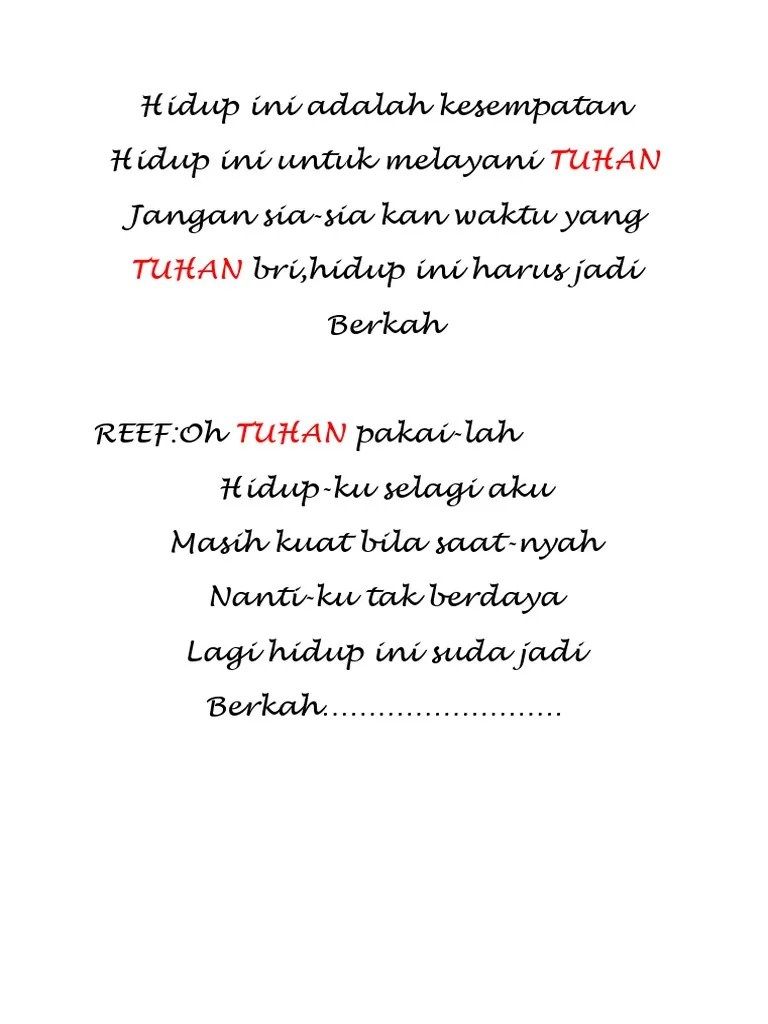 Hidup ini adalah kesempatan
Hidup ini untuk melayani TUHAN
Jangan sia-sia kan waktu yang
TUHAN bri,hidup ini harus jadi
Berkah
REEF:Oh TUHAN pakai-lah
Hidup-ku selagi aku
Masih kuat bila saat-nyah
Nanti-ku tak berdaya
Lagi hidup ini suda jadi
Berkah..........................